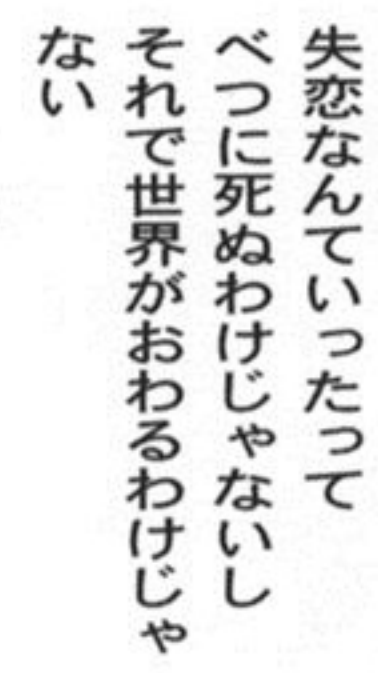 失恋なんていったって
べつに死ぬわけじゃないし
それで世界がおわるわけじゃ
ない